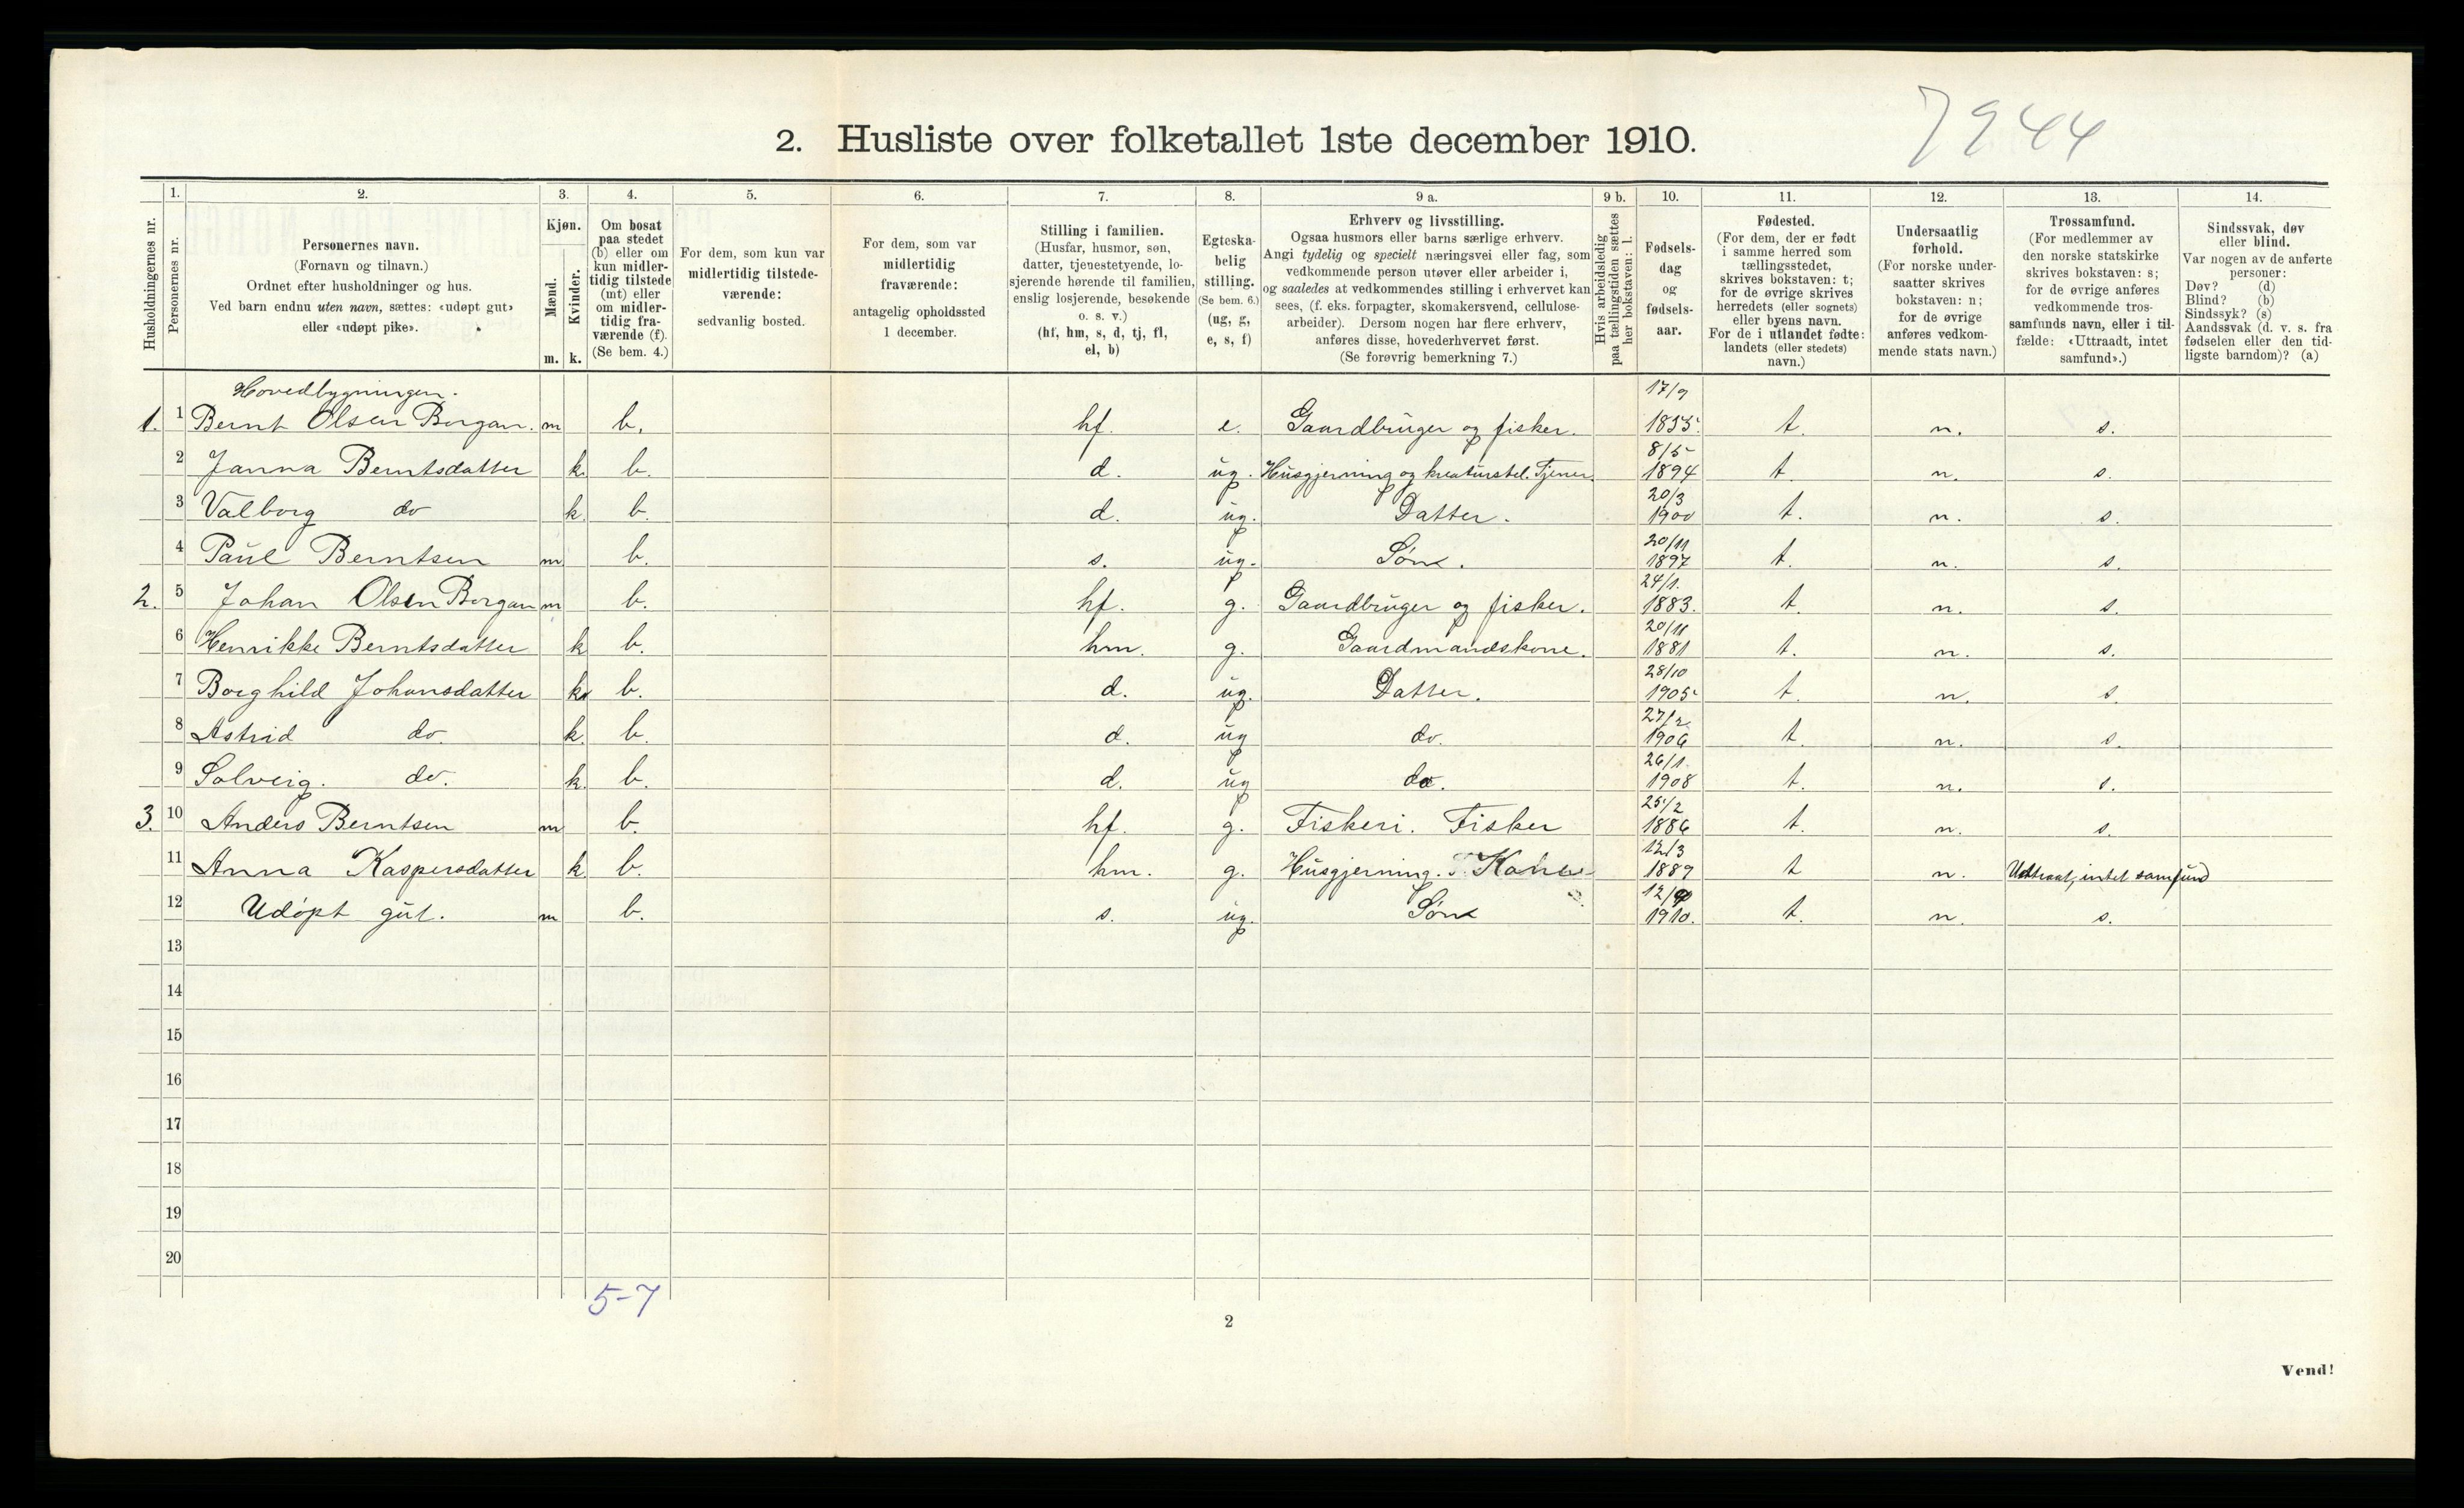 7944
2. Husliste over folketallet 1ste december 1910.
Husholdningernes nr.
1. Personernes nr.
2. Personernes navn.
(Fornavn og tilnavn.)
Ordnet efter husholdninger og hus.
Ved barn endnu uten navn, sættes: «udøpt gut»
eller «udøpt pike».
3. Kjøn.
Mænd. m.
Kvinder. k.
4. Om bosat
paa stedet
(b) eller om
kun midler-
tidig tilstede
(mt) eller
om midler-
tidig fra-
værende (f).
(Se bem. 4.)
5. For dem, som kun var
midlertidig tilstede-
værende:
sedvanlig bosted.
6. For dem, som var
midlertidig
fraværende:
antagelig opholdssted
1 december.
7. Stilling i familien.
(Husfar, husmor, søn,
datter, tjenestetyende, lo-
sjerende hørende til familien,
enslig losjerende, besøkende
o. s. v.)
(hf, hm, s, d, tj, fl,
el, b)
8. Egteska-
belig
stilling.
(Se bem. 6.)
(ug, g,
e, s, f)
9 a. Erhverv og livsstilling.
Ogsaa husmors eller barns særlige erhverv.
Angi tydelig og specielt næringsvei eller fag, som
vedkommende person utøver eller arbeider i,
og saaledes at vedkommendes stilling i erhvervet kan
sees, (f. eks. forpagter, skomakersvend, cellulose-
arbeider). Dersom nogen har flere erhverv,
anføres disse, hovederhvervet først.
(Se forøvrig bemerkning 7.)
9 b. Hvis arbeidsledig
paa tællingstiden sættes
her bokstaven: l.
10. Fødsels-
dag
og
fødsels-
aar.
11. Fødested.
(For dem, der er født
i samme herred som
tællingsstedet,
skrives bokstaven: t;
for de øvrige skrives
herredets (eller sognets)
eller byens navn.
For de i utlandet fødte:
landets (eller stedets)
navn.)
12. Undersaatlig
forhold.
(For norske under-
saatter skrives
bokstaven: n;
for de øvrige
anføres vedkom-
mende stats navn.)
13. Trossamfund.
(For medlemmer av
den norske statskirke
skrives bokstaven: s;
for de øvrige anføres
vedkommende tros-
samfunds navn, eller i til-
fælde: «Uttraadt, intet
samfund».)
14. Sindssvak, døv
eller blind.
Var nogen av de anførte
personer:
Døv? (d)
Blind? (b)
Sindssyk? (s)
Aandssvak (d. v. s. fra
fødselen eller den tid-
ligste barndom)? (a)
Hovedbygningen.
1. 1 Bernt Olsen Borgan. m b. hf. e. Gaardbruger og fisker. 17/9 1855. t. n. s.
2 Janna Berntsdatter k. b. d. ug. Husgjerning og kreaturstel. Tjener. 8/5 1894 t. n. s.
3 Valborg do k. b. d. ug. Datter. 20/3 1900 t. n. s.
4 Paul Berntsen m b. s. ug. Søn. 20/11 1897 t. n. s.
2. 5 Johan Olsen Borgan m b. hf. g. Gaardbruger og fisker. 24/1. 1883. t. n. s.
6 Henrikke Berntsdatter k b. hm. g. Gaardmandskone. 20/11 1881 t. n. s.
7 Borghild Johansdatter k b. d. ug. Datter. 28/10 1905 t. n. s
8 Astrid do. k. b. d. ug do. 27/12 1906 t. n. s.
9 Solveig. do. k. b. d. ug do. 26/1. 1908 t. n. s.
3. 10 Anders Berntsen m b. hf. g. Fiskeri. Fisker 25/2 1886 t. n. s.
11 Anna Kaspersdatter k. b. hm. g. Husgjerning. Kone 12/3 1889 t n. Udtraat, intet samfund
12 Udøpt gut. m b. s. ug. Søn 12/9 1910. t. n. s.
13
14
15
16
17
18
19
20
5-7
2
Vend!